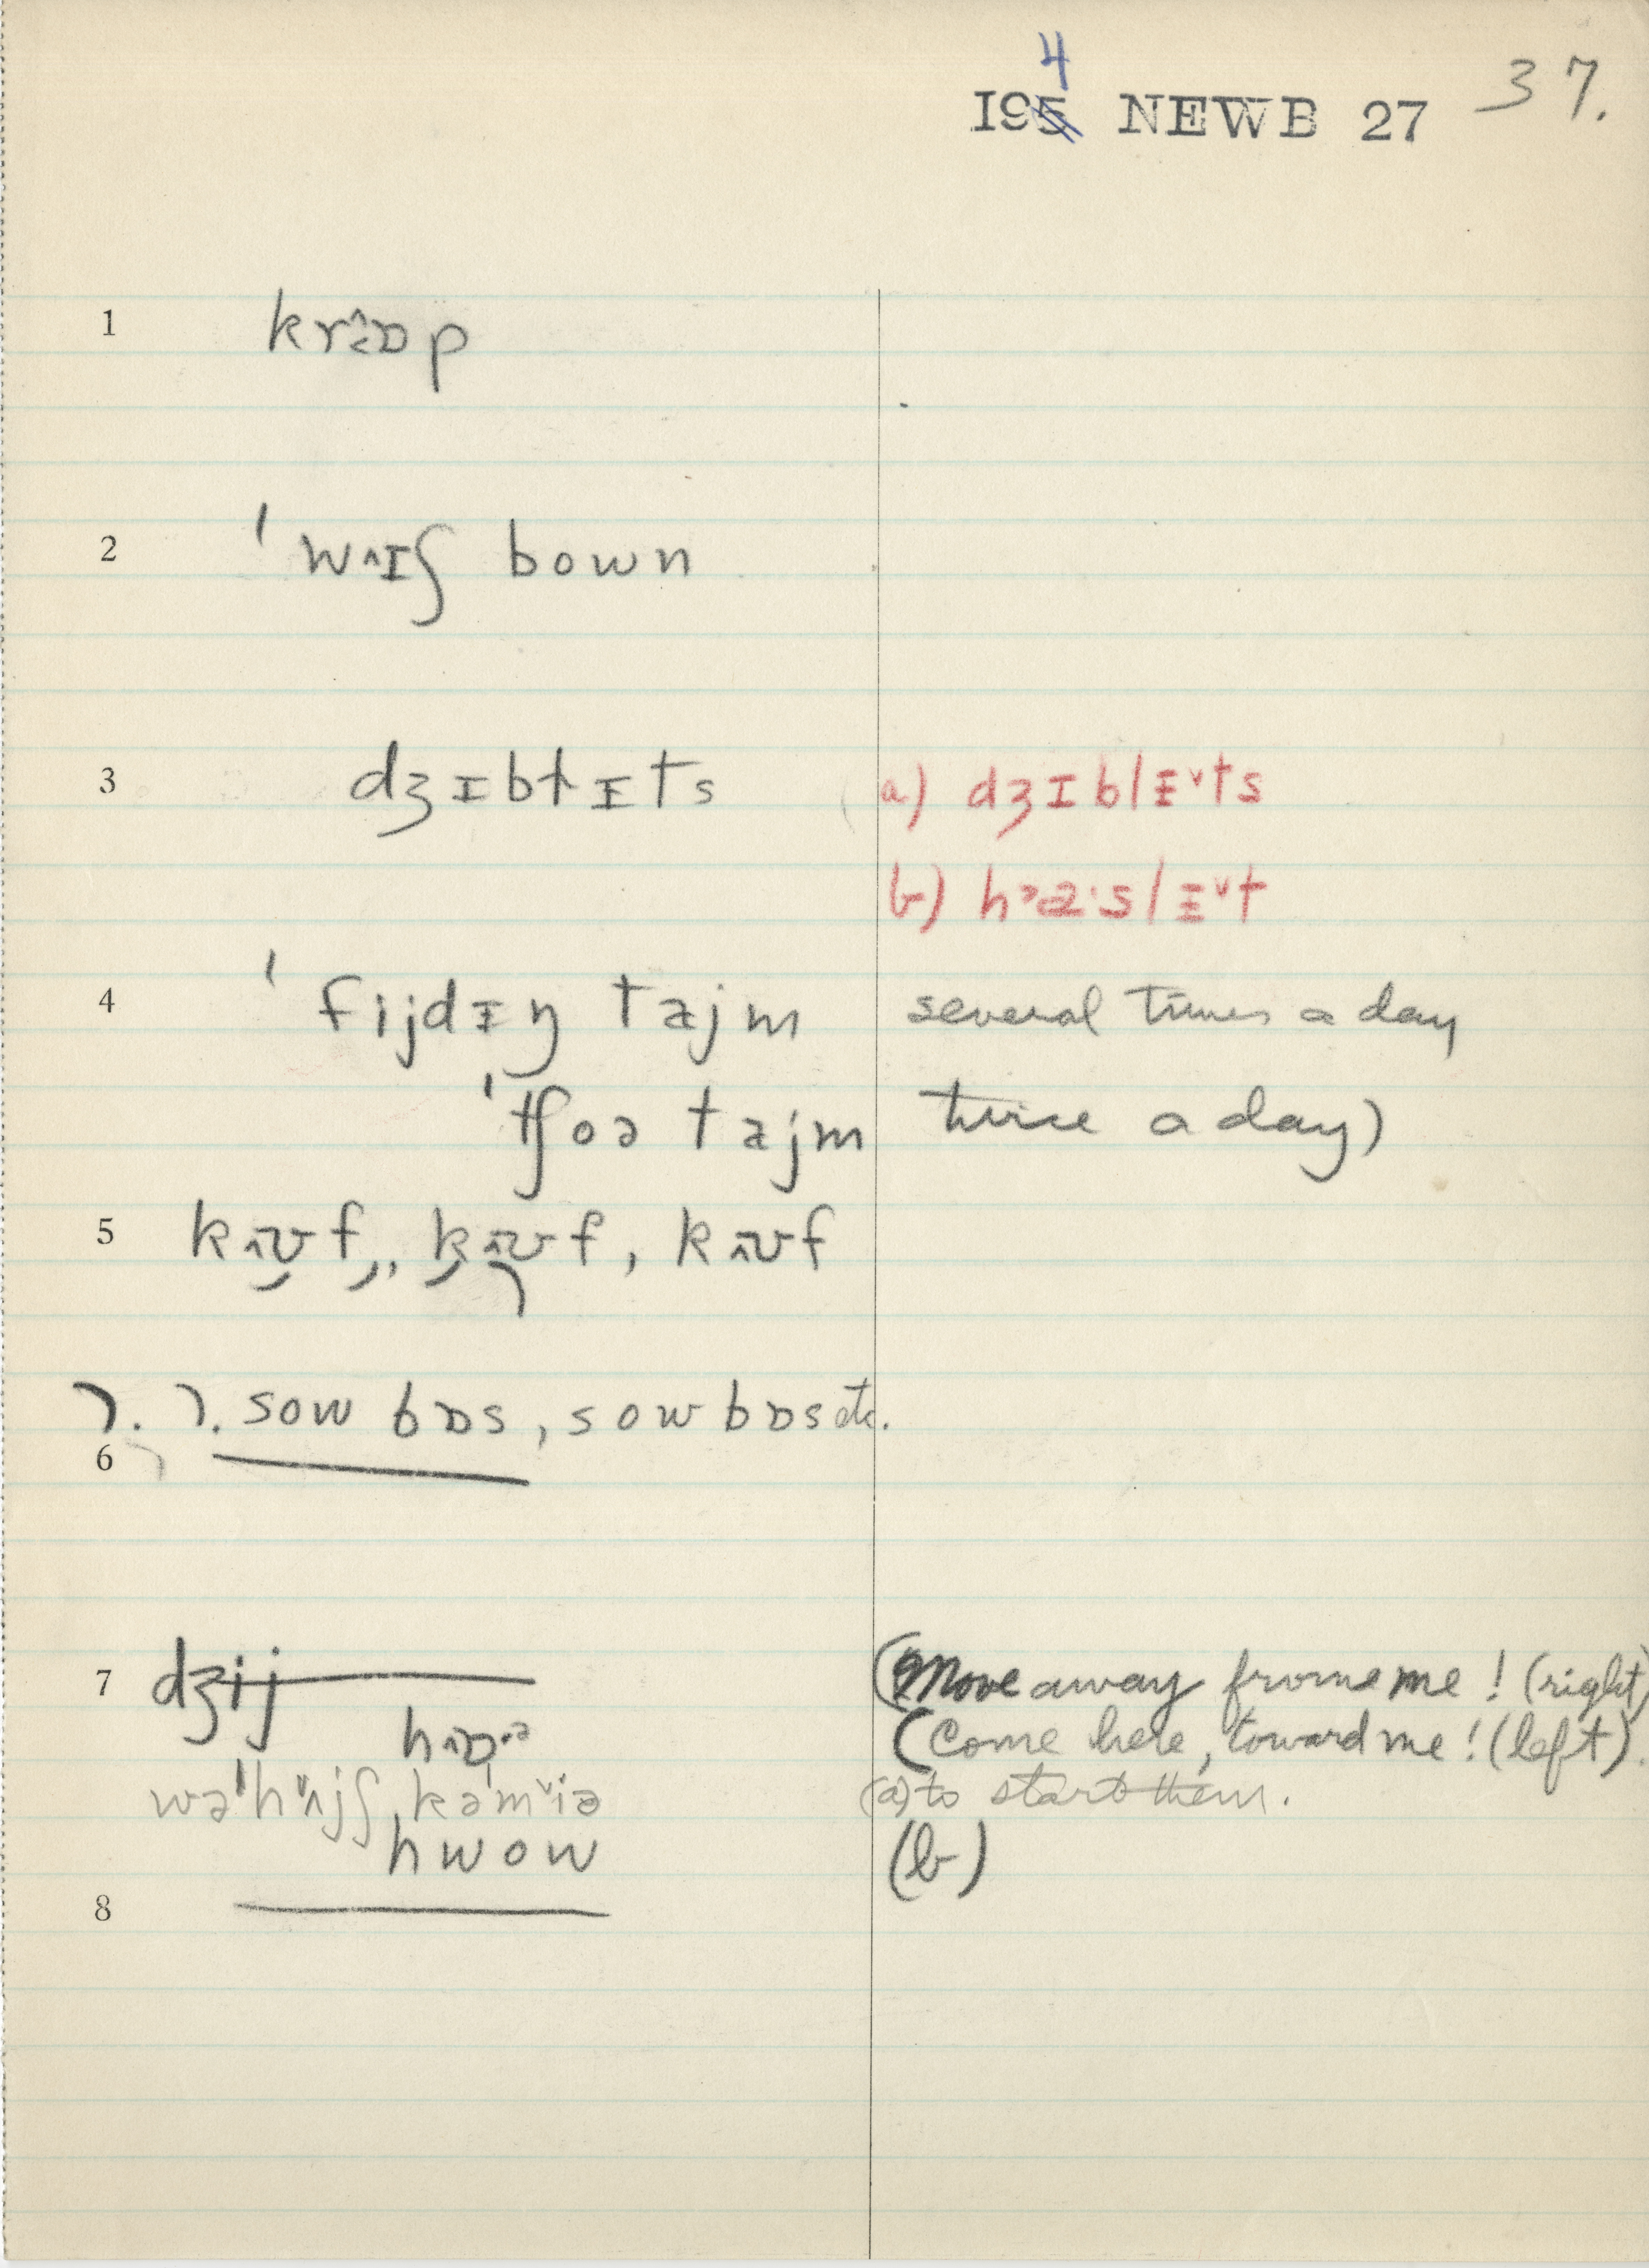 4
195 NEWB 27 37.
1 krɒ̂p
2 ˈwʌɪʃ bown
3 dʒɪbɫɨts a) dʒɪblɨ˅ts
b) hɔa·slɨ˅t
4 ˈfijdɨŋ tajm several times a day
ˈtʃoə tajm twice a day)
5 kʌʊf,, kʌʊf, kʌʊf
ʔ. ʔ. sow bɒs, sow bɒs etc.
6
7 dʒij (Move away frome me! (right)
hɒ·ə (Come here, toward me! (left).
wəˈhʌjʃ, kəˈm˅iə (a) to start them.
hwow (b)
8